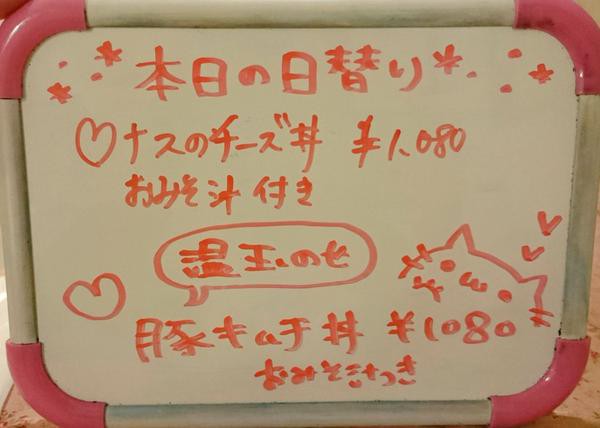 本日の日替り
ナスのチーズ丼 ¥1,080
おみそ汁付き
温玉のせ
豚キムチ丼 ¥1080
おみそ汁つき